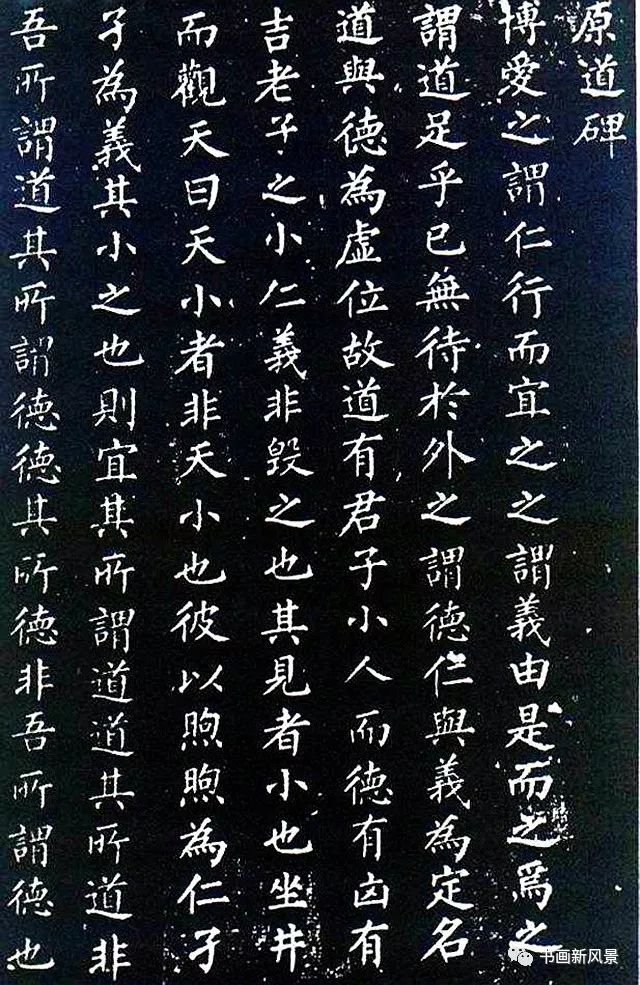 原道碑
博愛之謂仁行而宜之之謂義由是而之爲之
謂道足乎已無待於外之謂德仁與義為定名
道與德為虛位故道有君子小人而德有凶有
吉老子之小仁義非毀之也其見者小也坐井
而觀天曰天小者非天小也彼以煦煦為仁孑
孑為義其小之也則宜其所謂道道其所道非
吾所謂道其所謂德德其所德非吾所謂德也
书画新风景